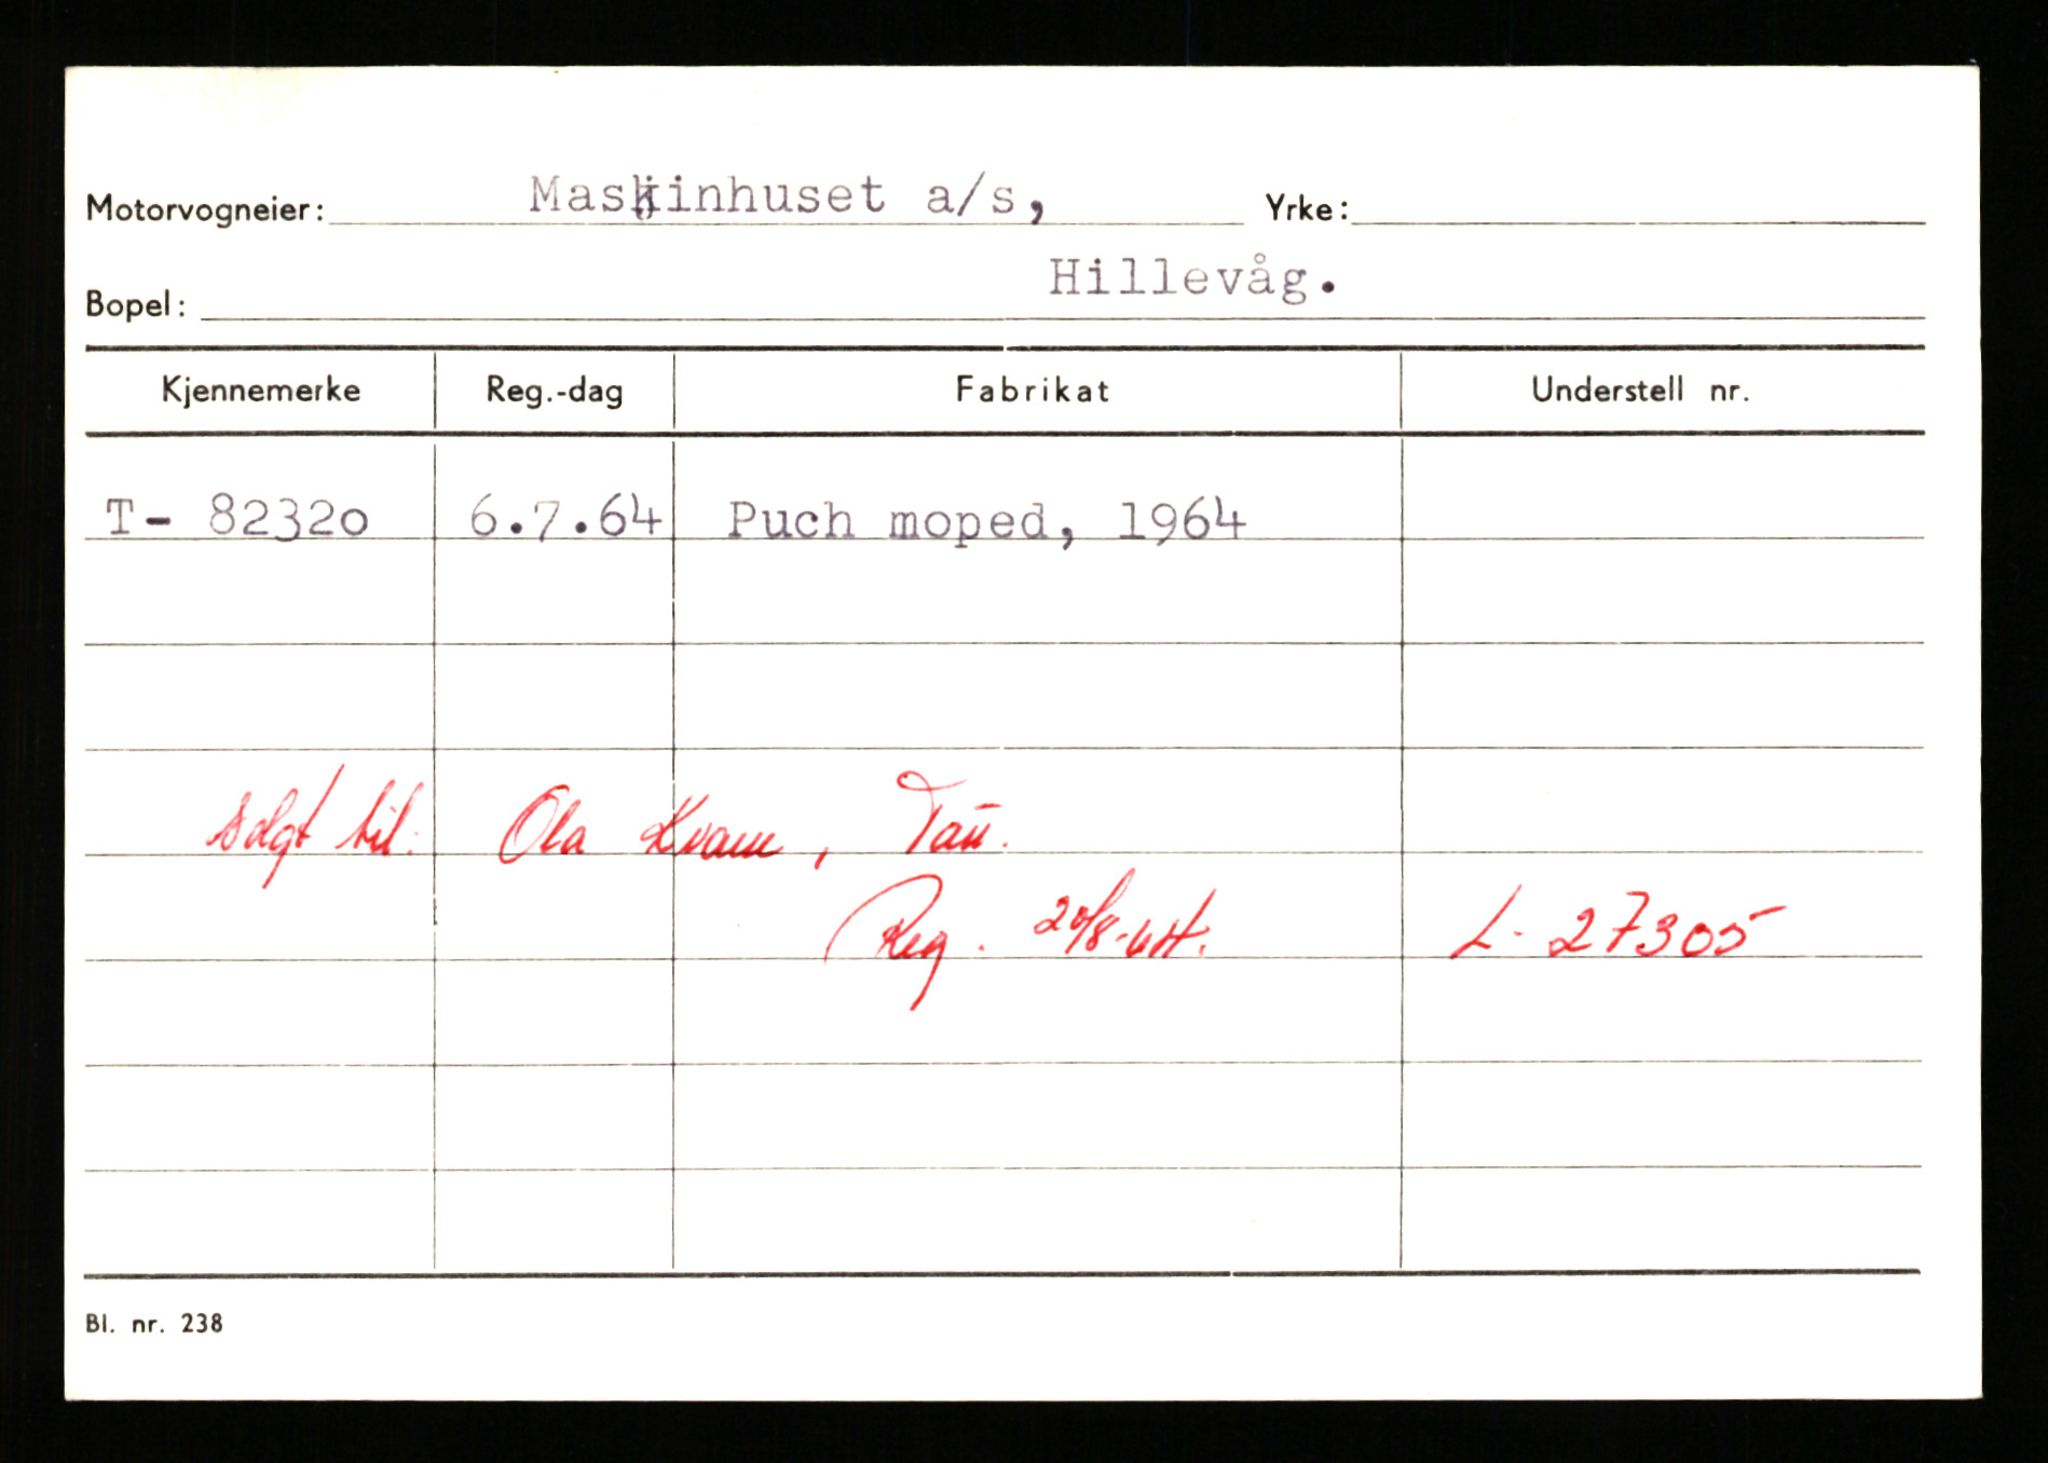 Motorvogneier: Maskinhuset a/s, Yrke:
Bopel: Hillevåg.
Kjennemerke Reg.-dag Fabrikat Understell nr.
T- 82320 6.7.64 Puch moped, 1964
solgt til: Ola Kvam, Tau.
Reg. 20/8-64. L- 27305
Bl. nr. 238